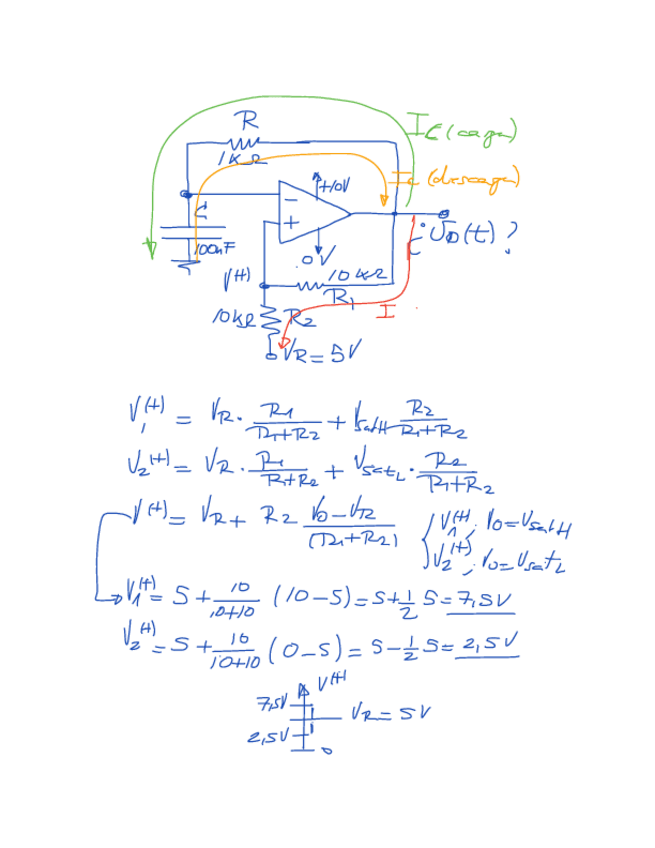 R
1KΩ
I c (carga)
Ic (descarga)
+10V
−
+
C
100nF
0V
¿ Vo(t) ?
V(+)
10KΩ
R1
I
10KΩ
R2
VR = 5V
V1(+) = VR · R1/(R1+R2) + VsatH R2/(R1+R2)
V2(+) = VR · R1/(R1+R2) + VsatL · R2/(R1+R2)
V(+) = VR + R2 (Vo−VR)/(R1+R2) { V1(+), Vo=VsatH
V2(+), Vo=VsatL
V1(+) = 5 + 10/(10+10) (10−5) = 5+1/2 5 = 7,5V
V2(+) = 5 + 10/(10+10) (0−5) = 5−1/2 5 = 2,5V
V(+)
7,5V
VR = 5V
2,5V
0